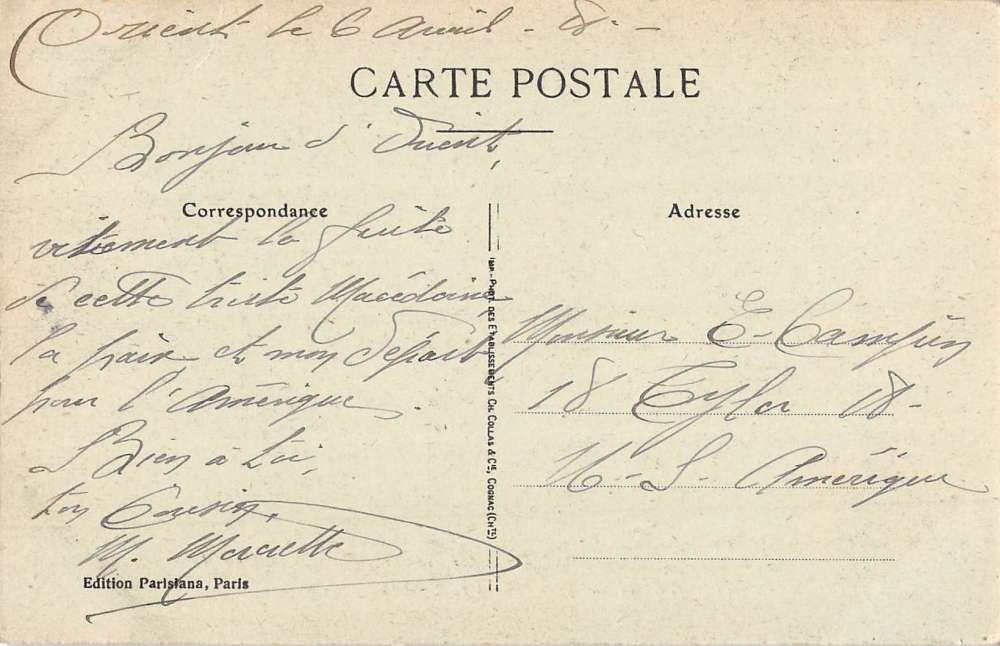 Orient le 6 Avril - 18. -
CARTE POSTALE
Bonjour d'Orient,
Correspondance
vitement la fuite
de cette triste Macédoine
la paix et mon départ
pour l'Amérique.
Bien à toi,
ton Cousin,
M.
Edition Parisiana, Paris
IMP.-PHOT. DES ETABLISSEMENTS CH. COLLAS & CIE, COGNAC (CHTE)
Adresse
Monsieur E.
18 Tyler 18-
U-S- Amérique